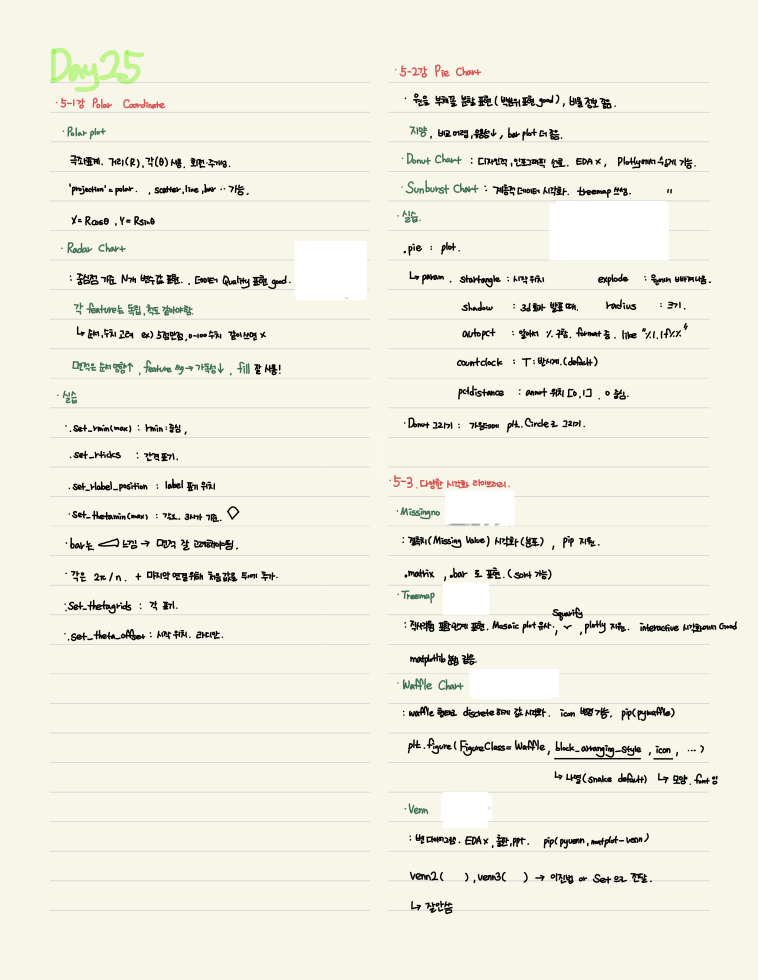 Day25
·5-1강 Polar Coordinate
·Polar plot
극좌표계. 거리(R), 각(θ) 사용. 회전·주기성.
'projection' = polar. , scatter, line, bar ·· 가능.
X = Rcosθ , Y = Rsinθ
·Radar Chart
: 중심점 기준 N개 변수값 표현. , 데이터 Quality 표현 good.
각 feature는 독립, 척도 같아야함.
↳ 순서, 수치 고려 ex) 5점만점, 0-100 수치 같이쓰면 X
면적은 순서 영향↑, feature 많→ 가독성↓, fill 잘 사용!
·실습
·.set_rmin(max) : rmin : 중심,
·.set_rticks : 간격 표기.
·set_rlabel_position : label 표기 위치
·Set_thetamin(max) : 각도. 3시가 기준.
·bar는 느낌 → 면적 잘 고려해야됨.
·각은 2π/n. + 마지막 연결위해 처음값을 뒤에 추가.
·Set_thetagrids : 각 표기.
·.Set_theta_offset : 시작 위치. 라디안.
·5-2강 Pie Chart
· 원을 부채꼴 분할 표현 (백분위 표현 good), 비율 정보 줌.
지양, 비교 어렵, 유용성↓, bar plot 더 좋음.
·Donut Chart : 디자인적, 인포그래픽 선호. EDA X, Plotly에서 쉽게 가능.
·Sunburst Chart : 계층적 데이터 시각화. treemap 쓰셈. "
·실습.
.pie : plot.
↳ param. startangle : 시작 위치 explode : 원에서 빠져나옴.
shadow : 3d 효과 발표 때. radius : 크기.
autopct : 알아서 % 구함. format 줌. like "%1.1f%%"
countclock : T : 반시계.(default)
pctdistance : annot 위치 [0,1] . 0 중심.
·Donut 그리기 : 가운데에 plt.Circle로 그리기.
·5-3. 다양한 시각화 라이브러리.
·Missingno
: 결측치(Missing Value) 시각화 (분포) , pip 지원.
.matrix , .bar 로 표현. (sort 가능)
·Treemap
Squarify
: 직사각형 포함관계 표현. Mosaic plot 유사·, , plotly 지원. interactive 시각화 Good
matplotlib 같은
·Waffle Chart
: waffle 형태로 discrete하게 값 시각화. icon 변경 가능. pip(pywaffle)
plt.figure(FigureClass=Waffle, block_arranging_style , icon , ···)
↳ 나열(snake default) ↳ 모양. font
·Venn
: 벤 다이어그램. EDA X, 출판, ppt. pip(pyvenn, matplot-venn)
venn2( ), venn3( ) → 이진법 or Set으로 전달.
↳ 잘안씀